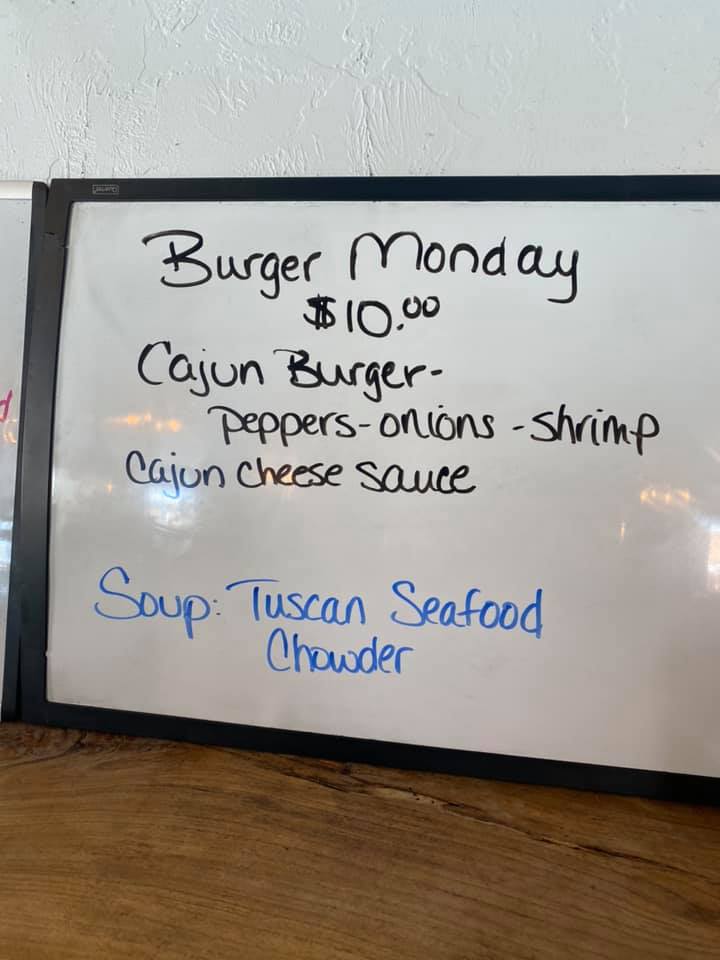 Burger Monday
$10.00
Cajun Burger-
peppers-onions-shrimp
Cajun cheese sauce
Soup: Tuscan Seafood
Chowder